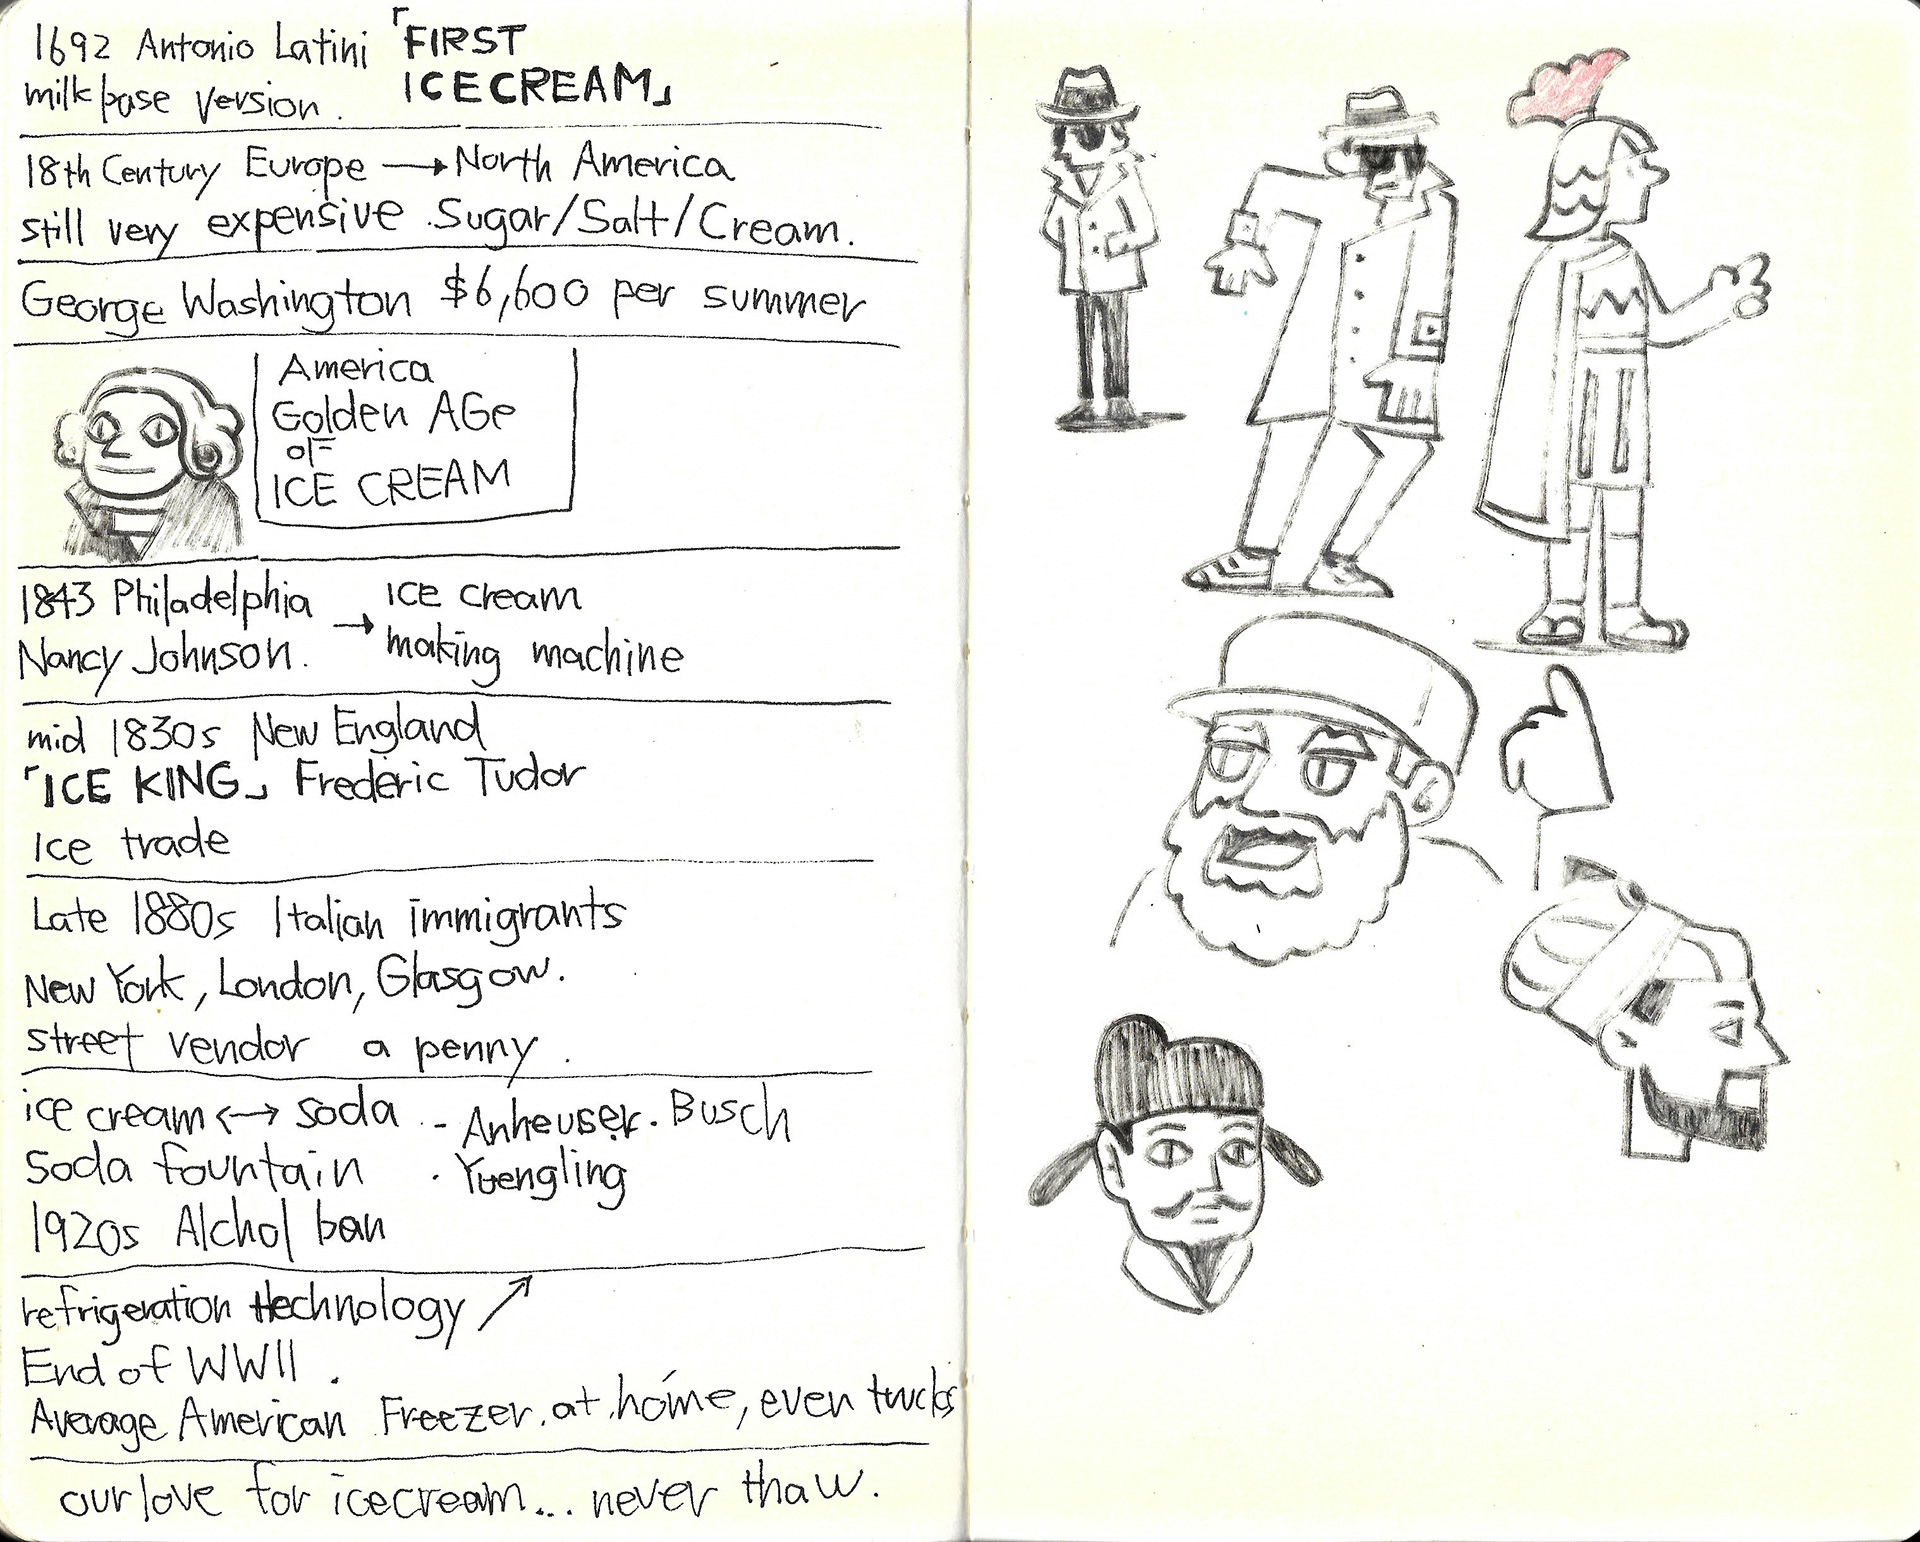 1692 Antonio Latini 「FIRST
ICECREAM」
milk base version.
18th Century Europe → North America
still very expensive. Sugar/Salt/Cream.
George Washington $6,600 per summer
America
Golden AGe
of
ICE CREAM
1843 Philadelphia → ice cream
Nancy Johnson. making machine
mid 1830s New England
「ICE KING」 Frederic Tudor
Ice trade
Late 1880s Italian immigrants
New York, London, Glasgow.
street vendor a penny.
ice cream ↔ soda - Anheuser. Busch
Soda fountain · Yuengling
1920s Alchol ban
refrigeration technology ↗
End of WWII.
Average American Freezer at home, even trucks
our love for icecream... never thaw.